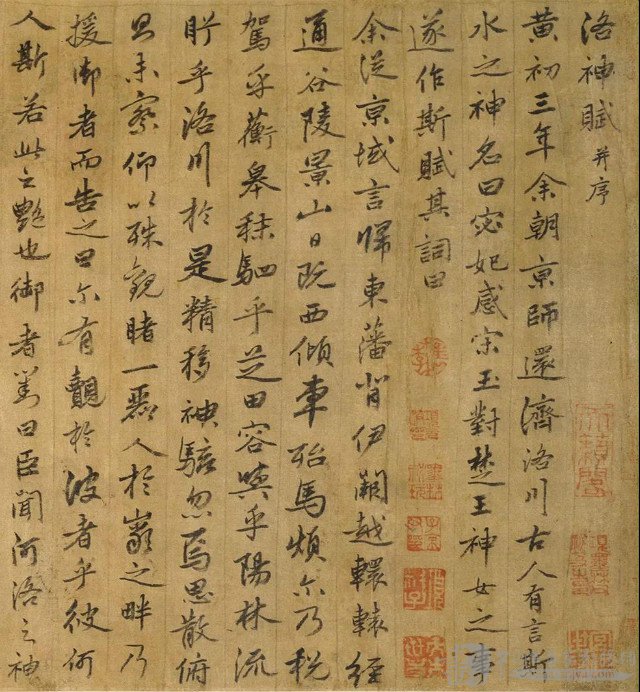 洛神賦并序
黄初三年余朝京師還濟洛川古人有言斯
水之神名曰宓妃感宋玉對楚王神女之事
遂作斯賦其詞曰
余從京域言歸東藩背伊闕越轘轅經
通谷陵景山日既西傾車殆馬煩尔乃税
駕乎蘅皋秣駟乎芝田容與乎陽林流
眄乎洛川於是精移神駭忽焉思散俯
則未察仰以殊觀睹一麗人於巖之畔乃
援御者而告之曰尔有覿於彼者乎彼何
人斯若此之艷也御者對曰臣聞河洛之神